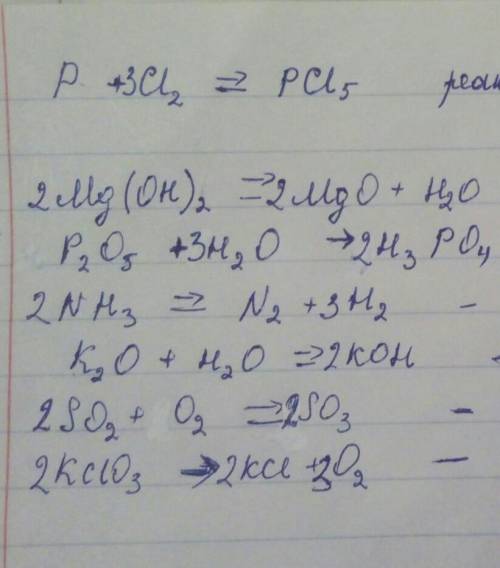 P + 3Cl₂ ⇌ PCl₅ реак
2Mg(OH)₂ ⇌ 2MgO + H₂O
P₂O₅ + 3H₂O → 2H₃PO₄
2NH₃ ⇌ N₂ + 3H₂ -
K₂O + H₂O ⇌ 2KOH
2SO₂ + O₂ ⇌ 2SO₃ -
2KClO₃ → 2KCl + 3O₂ -